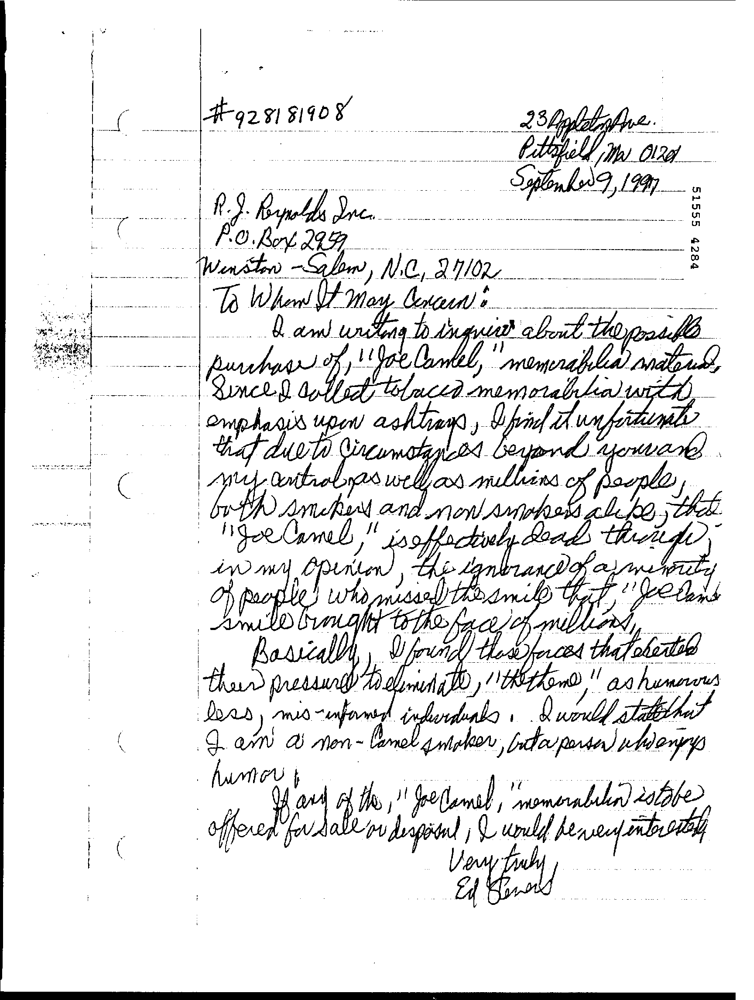 #928181908
23 Appleton Ave.
Pittsfield, Ma 01201
September 9, 1997
51555 4284
R.J. Reynolds Inc.
P.O. Box 2959
Winston-Salem, N.C, 27102
To Whom It May Concern:
I am writing to inquire about the possible
purchase of, "Joe Camel," memorabilia material,
Since I collect tobacco memorabilia with
emphasis upon ashtrays, I find it unfortunate
that due to circumstances beyond your and
my control as well as millions of people,
both smokers and non smokers alike, that
"Joe Camel," is effectively dead through,
in my opinion, the ignorance of a minority
of people who missed the smile that, "Joe Camel
smile brought to the face of millions,
Basically, I found those forces that exerted
their pressure to eliminate, "the theme," as humorous
less, mis-informed individuals. I would state that
I am a non-Camel smoker, but a person who enjoys
humor.
If any of the, "Joe Camel," memorabilia is to be
offered for sale or disposal, I would be very interested
Very truly,
Ed